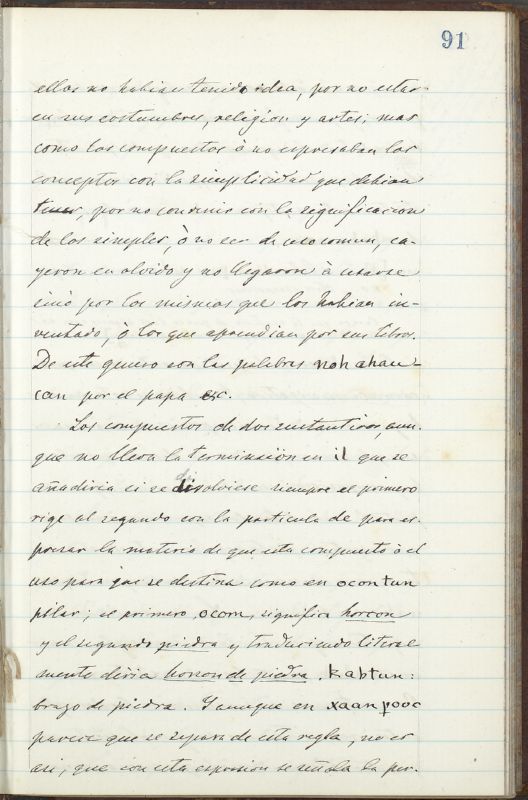 91
ellos no habian tenido idea, por no estar
en sus costumbres, religion y artes; mas
como los compuestos ò no espresaban los
conceptos con la simplicidad que debian
tener, por no convenir con la significacion
de los simples, ò no ser de uso comun, ca-
yeron en olvido y no llegaron à usarse
sinò por los mismos que los habian in-
ventado, ò los que aprendian por sus libros.
De este genero son las palabras noh ahau-
can por el papa etc.
Los compuestos de dos sustantivos, aun-
que no lleva la terminaciòn en il que se
añadiria si se disolviese siempre el primero
rige al segundo con la particula de para es-
presar la materia de que esta compuesto ò el
uso para que se destina como en ocomtun
pilar; el primero, ocom, significa horcon
y el segundo piedra y traduciendo literal
mente diria horcon de piedra. Kabtun:
brazo de piedra. Y aunque en xaanpooc
parece que se separa de esta regla, no es
asi, que con esta espresion se señala la per-